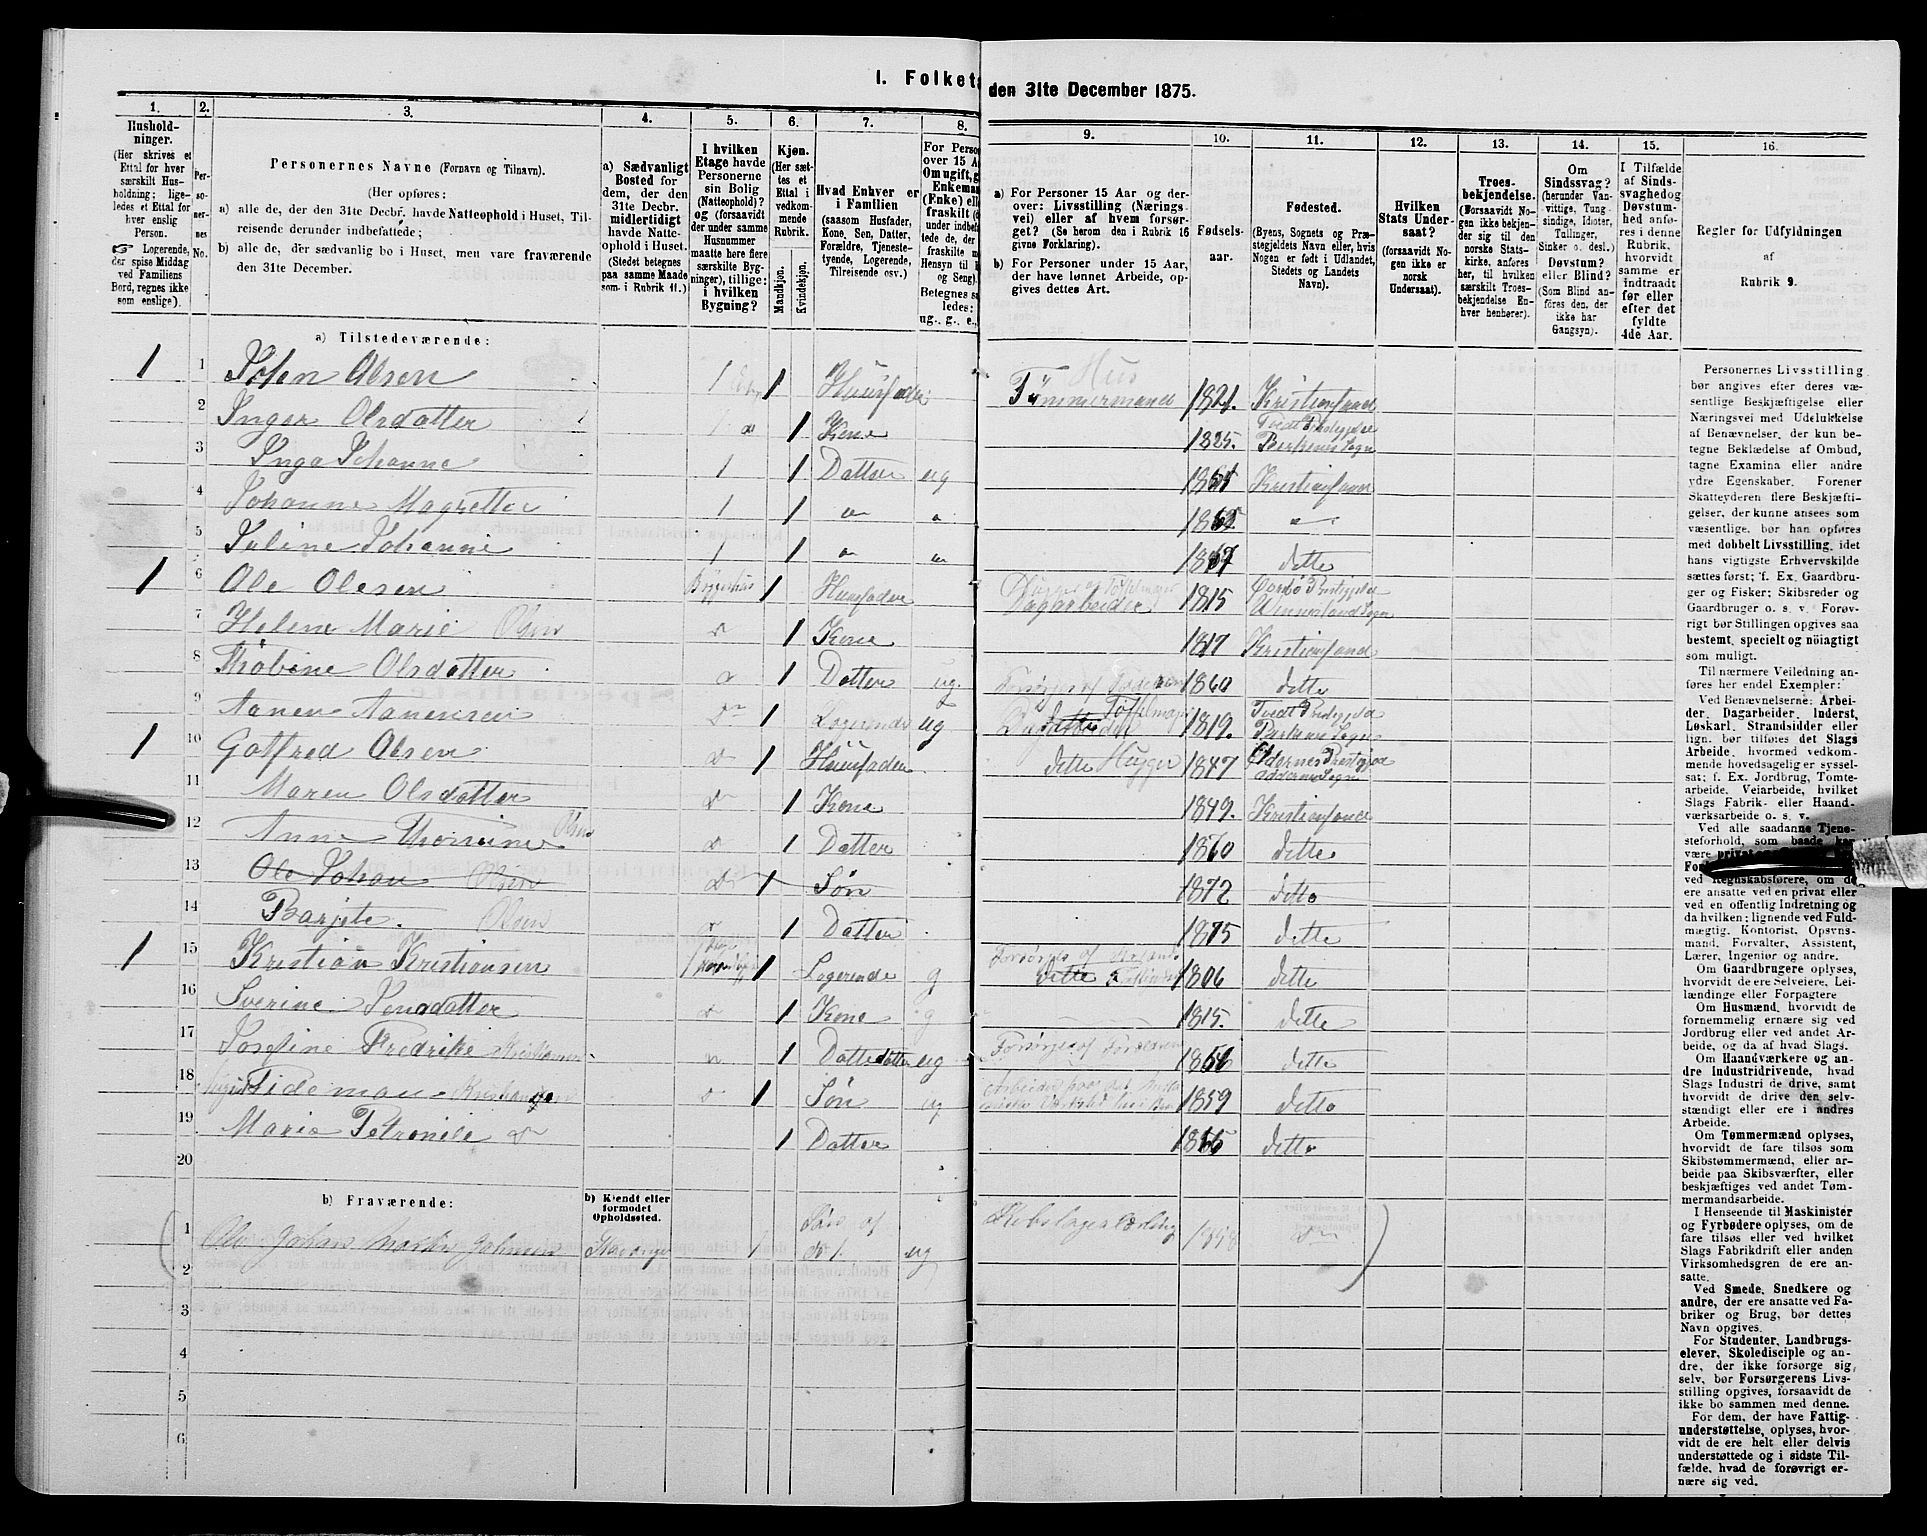 I. Folket
den 31te December 1875.
1. 2. 3. 4. 5. 6. 7. 8. 9. 10. 11. 12. 13. 14. 15. 16.
Husholdninger.
(Her skrives et
Ettal for hver
særskilt Husholdning;
ligeledes et Ettal for
hver enslig
Person.
☞ Logerende,
der spise Middag
ved Familiens
Bord, regnes ikke
som enslige).
Personernes No.
Personernes Navne (Fornavn og Tilnavn).
(Her opføres:
a) alle de, der den 31te Decbr. havde Natteophold i Huset, Tilreisende derunder indbefattede;
b) alle de, der sædvanlig bo i Huset, men vare fraværende den 31te December.
a) Sædvanligt
Bosted for
dem, der den
31te Decbr.
midlertidigt
havde Natteophold
i Huset.
(Stedet betegnes
paa samme Maade
som i Rubrik 11.)
I hvilken
Etage havde
Personerne
sin Bolig
(Natteophold)?
og (forsaavidt
der under samme
Husnummer
maatte høre flere
særskilte Bygninger),
tillige:
i hvilken
Bygning?
Kjøn.
(Her sættes
et
Ettal i
vedkommende
Rubrik.
Mandkjøn.
Kvindekjøn.
Hvad Enhver er
i Familien
(saasom Husfader,
Kone, Søn, Datter,
Forældre, Tjenestetyende,
Logerende,
Tilreisende osv.)
For Perso
over 15 A
Om ugift, g
Enkeman
(Enke) ell
fraskilt
under indbe
tede de,
fraskilte
Hensyn til
og Seng).
Betegnes s
ledes:
ug., g., e.,
a) For Personer 15 Aar og derover: Livsstilling (Næringsvei) eller af hvem forsørget? (Se herom den i Rubrik 16 givne Forklaring).
b) For Personer under 15 Aar, der have lønnet Arbeide, opgives dettes Art.
Fødselsaar.
Fødested.
(Byens, Sognets og Præstegjeldets Navn eller, hvis Nogen er født i Udlandet, Stedets og Landets Navn).
Hvilken
Stats Undersaat?
(forsaavidt Nogen
ikke er
norsk
Undersaat).
Troesbekjendelse.
(Forsaavidt Nogen
ikke bekjender
sig til den
norske Statskirke,
anføres
her, til hvilken
særskilt Troesbekjendelse
Enhver
henhører).
Om
Sindssvag?
(herunder Vanvittige,
Tungsindige,
Idioter,
Tullinger,
Sinker o. desl.)
Døvstum?
eller Blind?
(Som Blind anføres
den, der
ikke har
Gangsyn).
I Tilfælde
af Sindssvaghed
og
Døvstumhed
anføres
i denne
Rubrik,
hvorvidt
samme er
indtraadt
før eller
efter det
fyldte
4de Aar.
Regler for Udfyldningen
af
Rubrik 9.
a) Tilstedeværende:
1 1 John Olsen 1 1 Huusfader Hus Tømmermand 1821. Kristiansand
2 Inger Olsdatter 1 1 Kone 1825. Tvedt Birkenes Sogn
3 Inga Johanne 1 1 Datter ug Kristiansand
4 Johanne Magrette 1 1 "
5 Juline Johanne 1 1 " " 1867 dette
1 6 Ole Olesen 1 Huusfader Dagarbeider 1815
7 Helene Marie Olsen 1 Kone 1817 Kristiansand
8 Thobine Olsdatter 1 Datter ug. 1860 dette
9 Aanen Aanensen 1 Logerende ug 1819.
1 10 Gotfred Olsen 1 Huusfader dette Hugger 1847
11 Maren Olsdatter 1 Kone 1849. Kristiansand
12 Anne Thomine Olsen 1 Datter 1870 dette
13 Ole Johan Olsen 1 Søn 1872 dette
14 Olsen 1 Datter 1875 dette
1 15 Kristian Kristiansen 1 Logerende g 1806 dette
16 1 Kone g 1815. dette
17 Josefine Fredrike 1 ug 1856 dette
18 Tideman Kristiansen 1 Søn ug 1859 dette
19 Marie Petronile 1 Datter dette
20
b) Fraværende:
b) Kjendt eller
formodet
Opholdssted.
1 Ole Johan Martin Johnsen Stavanger 1 Søn af No 1. ug 1858
2
3
4
5
6
Personernes Livsstilling
bør angives efter deres væsentlige
Beskjæftigelse eller
Næringsvei med Udelukkelse
af Benævnelser, der kun betegne
Beklædelse af Ombud,
tagne Examina eller andre
ydre Egenskaber. Forener
Skatteyderen flere Beskjæftigelser,
der kunne ansees som
væsentlige, bør han opføres
med dobbelt Livsstilling, idet
hans vigtigste Erhvervskilde
sættes først; f. Ex. Gaardbruger
og Fisker; Skibsreder og
Gaardbruger o. s. v. Forøvrigt
bør Stillingen opgives saa
bestemt, specielt og nöiagtigt
som muligt.
Til nærmere Veiledning anføres
her endel Exempler:
Ved Benævnelserne: Arbeider,
Dagarbeider, Inderst,
Løskarl, Strandsidder eller
lign. bør tilføies det Slags
Arbeide, hvormed vedkommende
hovedsagelig er sysselsat;
f. Ex. Jordbrug, Tomtearbeide,
Veiarbeide, hvilket
Slags Fabrik- eller Haandværksarbeide
o. s. v.
Ved alle saadanne Tjenesteforhold,
som baade
være
ved Regnskabsførere, om de
ere ansatte ved en privat eller
ved en offentlig Indretning og
da hvilken; lignende ved Fuldmægtig,
Kontorist, Opsynsmand,
Forvalter, Assistent,
Lærer, Ingeniør og andre.
Om Gaardbrugere oplyses,
hvorvidt de ere Selveiere, Leilændinge
eller Forpagtere
Om Husmænd, hvorvidt de
fornemmelig ernære sig ved
Jordbrug eller ved andet Arbeide,
og da af hvad Slags.
Om Haandværkere og andre
Industridrivende, hvad
Slags Industri de drive, samt
hvorvidt de drive den selvstændigt
eller ere i andres
Arbeide.
Om Tømmermænd oplyses,
hvorvidt de fare tilsøs som
Skibstømmermænd, eller arbeide
paa Skibsværfter, eller
beskjæftiges ved andet Tømmermandsarbeide.
I Henseende til Maskinister
og Fyrbødere oplyses, om de
fare tilsøs eller ved hvilket
Slags Fabrikdrift eller anden
Virksomhedsgren de ere ansatte.
Ved Smede, Snedkere og
andre, der ere ansatte ved Fabriker
og Brug, bør dettes
Navn opgives.
For Studenter, Landbrugselever,
Skoledisciple og andre,
der ikke forsørge sig
selv, bør Forsørgerens Livsstilling
opgives, forsaavidt de
ikke bo sammen med denne.
For dem, der have Fattigunderstøttelse,
oplyses, hvorvidt
de ere helt eller delvis
understøttede og i sidste Tilfælde,
hvad de forøvrigt ernære
sig ved.